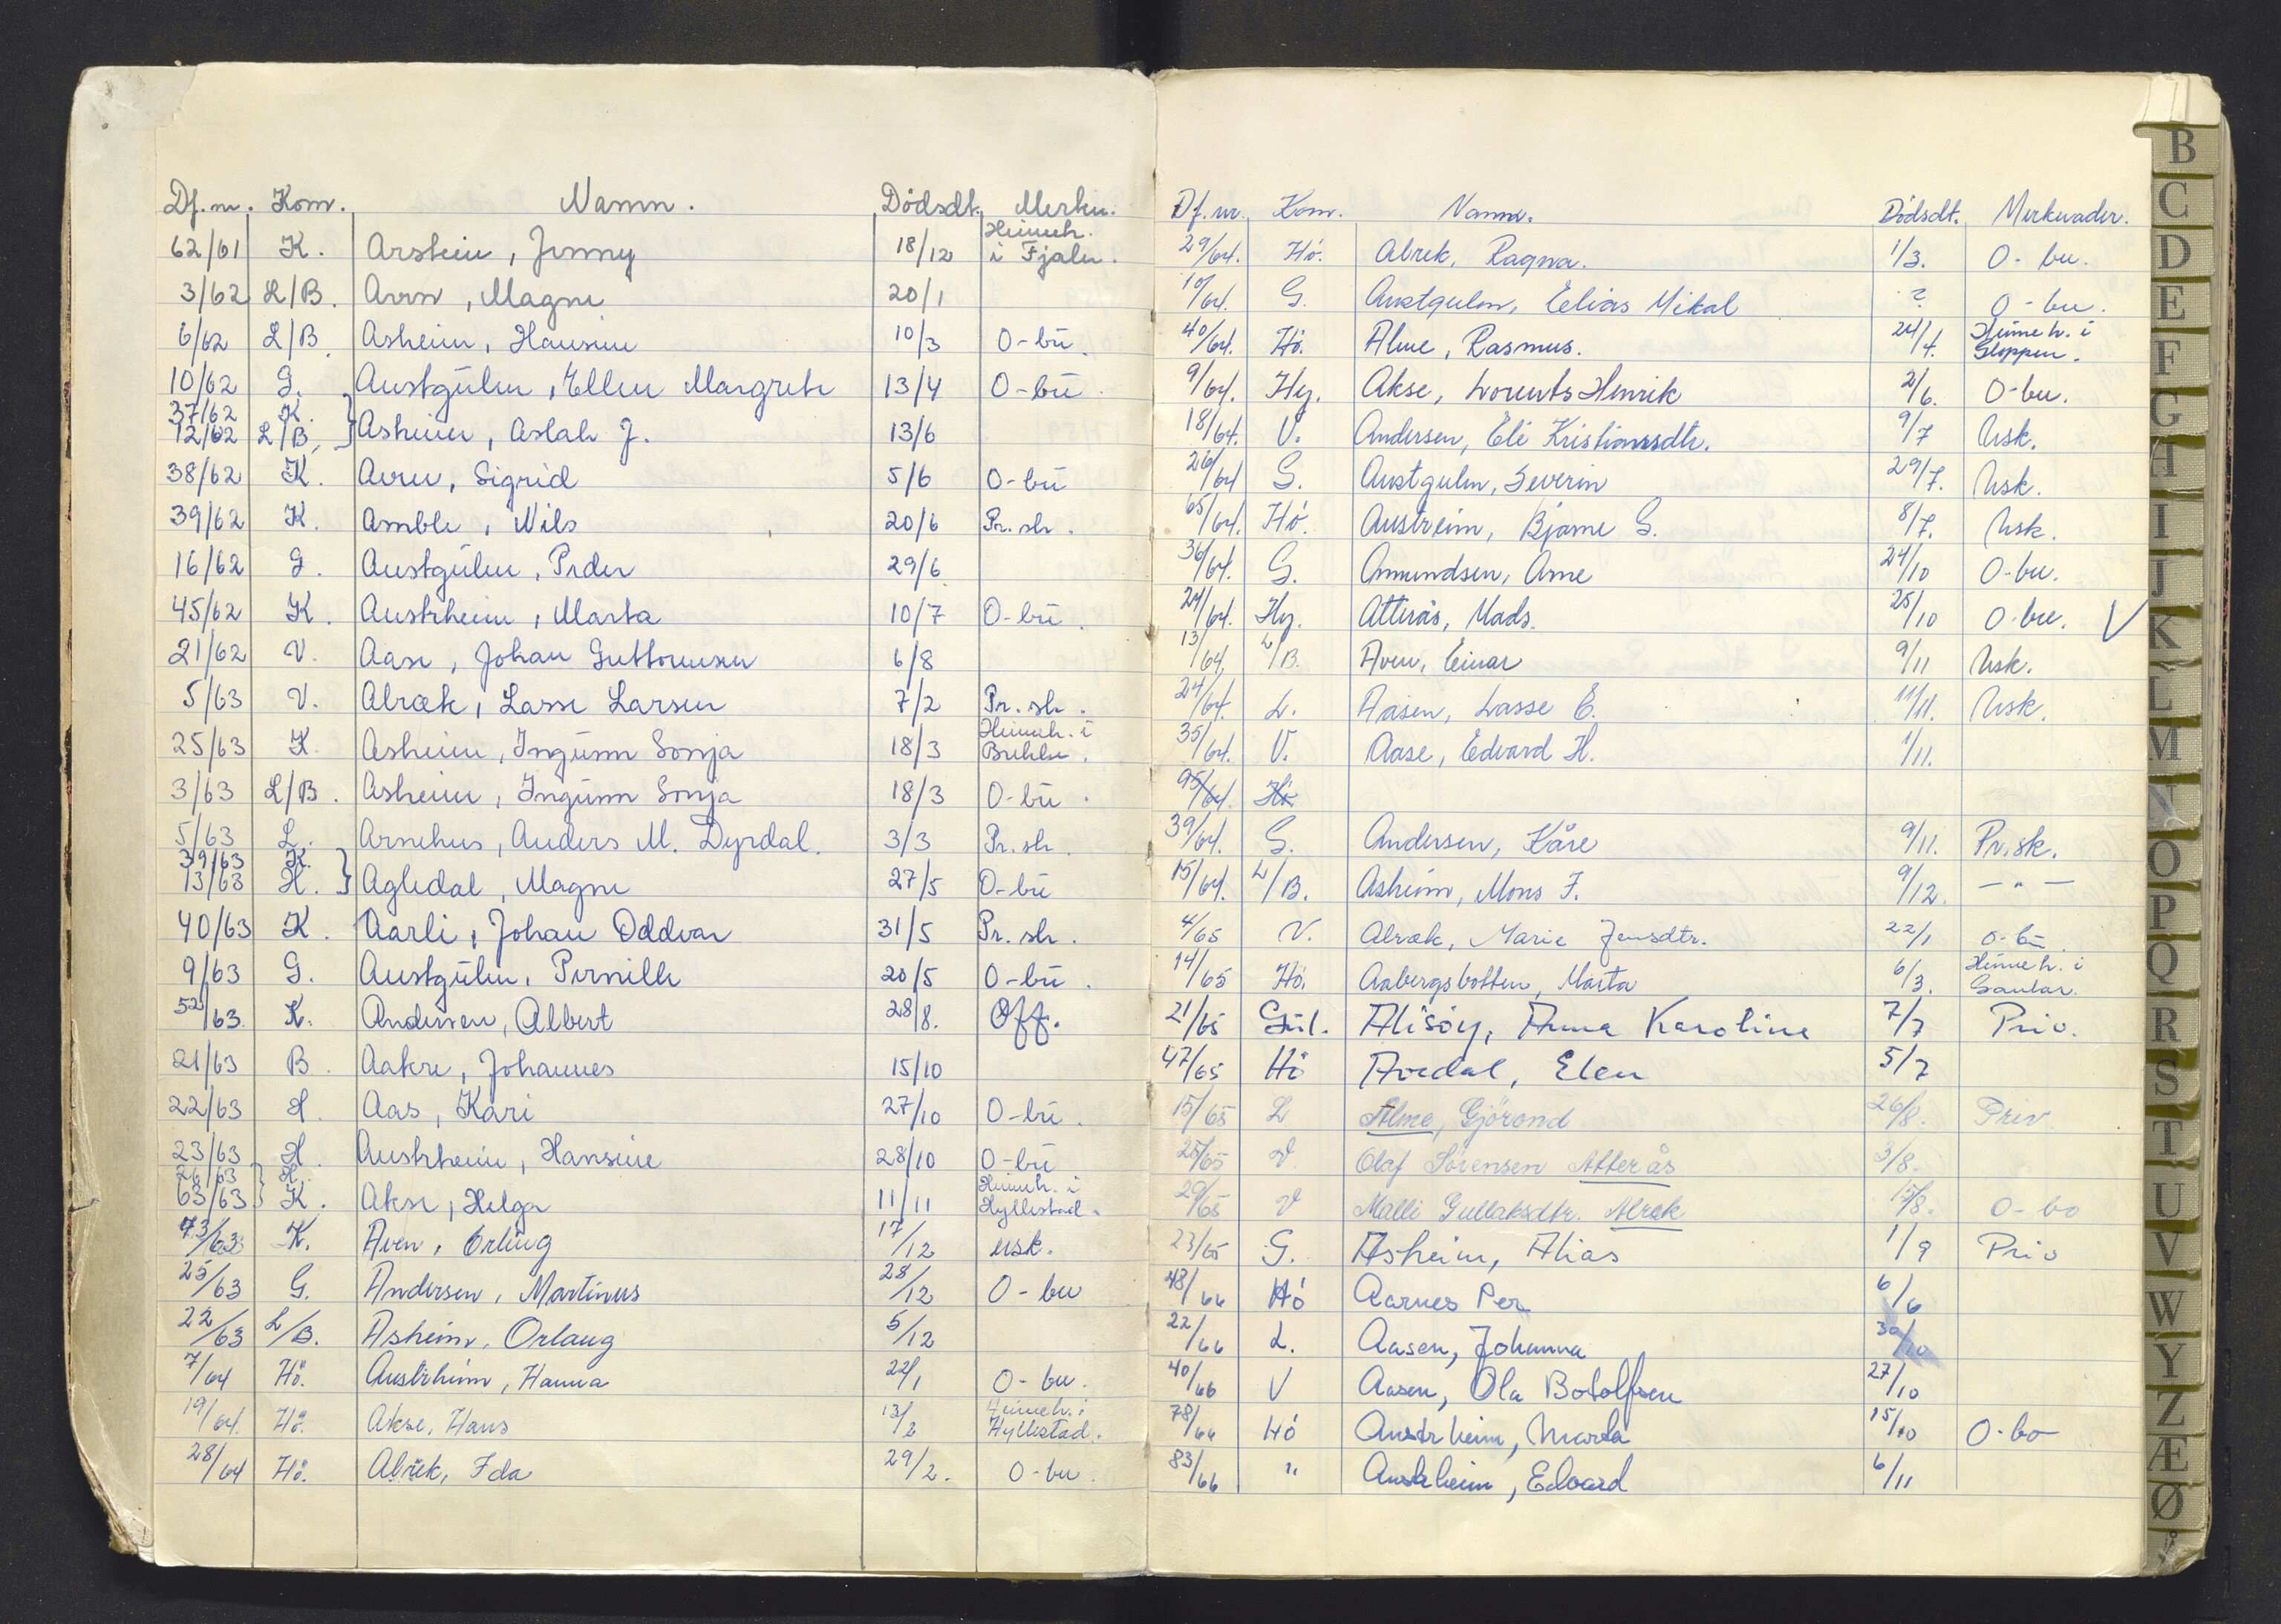 Df.nr. Kom. Namn. Dödsdt. Merkn.
62/61 K. Årstein, Jenny 18/12 Heimeh. i Fjaler.
3/62 L/B. Aven, Magne 20/1
6/62 L/B. Asheim, Hansine 10/3 O-bu.
10/62 G. Austgulen, Ellen Margrete 13/4 O-bu.
37/62 K.
12/62 L/B. Asheim, Aslak J. 13/6
38/62 K. Aven, Sigrid 5/6 O-bu
39/62 K. Amble, Nils 20/6 Pr. sk.
16/62 G. Austgulen, Peder 29/6
45/62 K. Austrheim, Marta 10/7 O-bu.
21/62 V. Aase, Johan Guttormsen 6/8
5/63 V. Alræk, Lasse Larsen 7/2 Pr. sk.
25/63 K. Asheim, Ingunn Sonja 18/3 Heimeh. i Brekke.
3/63 L/B. Asheim, Ingunn Sonja 18/3 O-bu.
5/63 L. Arnehus, Anders M. Dyrdal. 3/3 Pr. sk.
39/63 K.
13/63 H. Agledal, Magne 27/5 O-bu
40/63 K. Aarli, Johan Oddvar 31/5 Pr. sk.
9/63 G. Austgulen, Pernille 20/5 O-bu.
52/63. K. Andersen, Albert 28/8. Off.
21/63 B. Aakre, Johannes 15/10
22/63 H. Aas, Kari 27/10 O-bu.
23/63 H. Austrheim, Hansine 28/10 O-bu
26/63 H.
63/63 K. Akse, Helga 11/11 Heimeh. i Hyllestad.
73/63 K. Aven, Erling 17/12 usk.
25/63 G. Andersen, Martinus 28/12 O-bu
22/63 L/B. Asheim, Orlaug 5/12
7/64 Hö. Austrheim, Hanna 22/1 O-bu.
19/64. Hö. Akse, Hans 13/2 Heimeh. i Hyllestad.
28/64 Hö. Alrek, Ida 29/2. O-bu.
Df.nr. Kom. Namn. Dödsdt. Merknader.
29/64. Hö. Alrek, Ragna. 1/3. O-bu.
10/64. G. Austgulen, Elias Mikal ? O-bu.
40/64. Hö. Alme, Rasmus. 24/4. Heimeh. i Gloppen.
9/64. Hy. Akse, Lorents Henrik 2/6. O-bu.
18/64. V. Andersen, Eli Kristiansdtr. 9/7 Usk.
26/64 G. Austgulen, Severin 29/7. Usk.
65/64. Hö. Austreim, Bjarne G. 8/7. Usk.
36/64. G. Amundsen, Arne 24/10 O-bu.
24/64. Hy. Atterås, Mads. 25/10 O-bu. V
13/64. L/B. Aven, Einar 9/11 Usk.
24/64. L. Aasen, Lasse E. 11/11. Usk.
35/64. V. Aase, Edvard H. 1/11.
95/64. Hö
39/64. G. Andersen, Kåre 9/11. Pr.sk.
15/64. L/B. Asheim, Mons J. 9/12. — " —
4/65 V. Alræk, Marie Jensdtr. 22/1 O-bu.
14/65 Hö. Aabergsbotten, Marta 6/3. Heimeh. i Gaular.
21/65 Gul. Alisöy, Anna Karoline 7/7 Priv.
47/65 Hö Avedal, Elen 5/7
15/65 L Alme, Gjörond 26/8. Priv
25/65 V Olaf Sørensen Atterås 3/8.
29/65 V Malli Gullaksdtr. Alrek 15/8. O-bo
23/65 G. Asheim, Alias 1/9 Priv
48/66 Hö Aarnes Per 6/6
22/66 L. Aasen, Johanna 30/10
40/66 V Aasen, Ola Botolfsen 27/10
78/66 Hö Austrheim, Marta 15/10 O-bo
83/66 " Austrheim, Edvard 6/11
B
C
D
E
F
G
H
I
J
K
L
M
O
P
Q
R
S
T
U
V
W
Y
Z
Æ
Ø